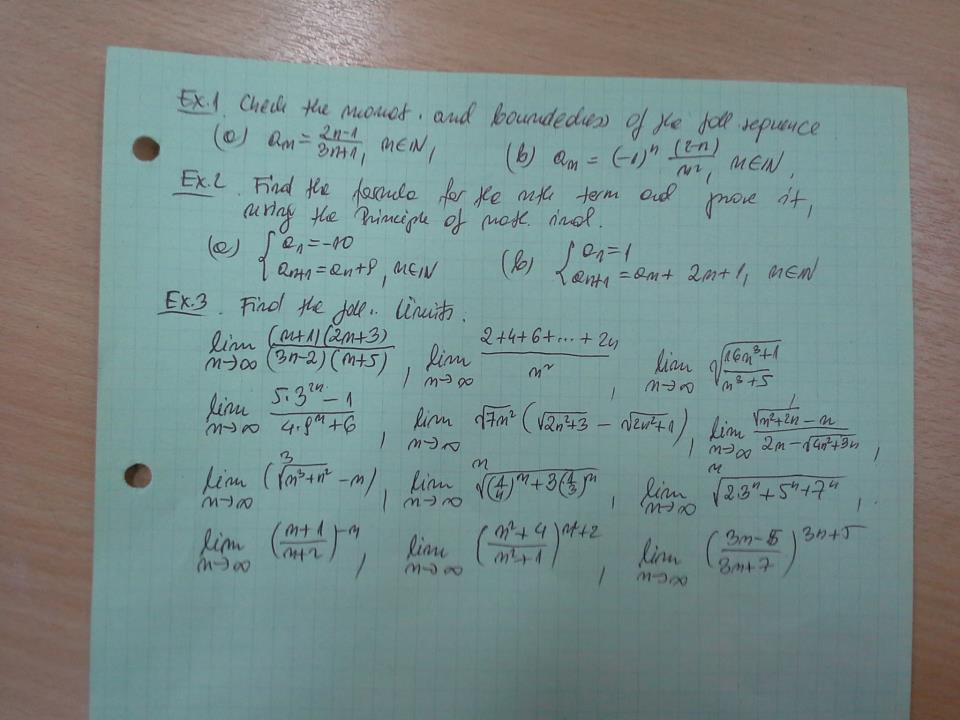 Ex.1. Check the monot. and boundedness of the foll. sequence
(a) aₙ = (2n-1)/(3n+1), n∈ℕ, (b) aₙ = (-1)ⁿ (2-n)/n², n∈ℕ,
Ex.2. Find the formula for the nth term and prove it,
using the Principle of math. ind.
(a) { a₁ = -10 (b) { a₁ = 1
aₙ₊₁ = aₙ + 9, n∈ℕ aₙ₊₁ = aₙ + 2n + 1, n∈ℕ
Ex.3. Find the foll.. limits.
lim n→∞ (n+1)(2n+3)/(3n-2)(n+5), lim n→∞ (2+4+6+...+2n)/n², lim n→∞ √((16n³+1)/(n³+5))
lim n→∞ (5·3²ⁿ - 1)/(4·9ⁿ + 6), lim n→∞ √7n² (√(2n²+3) - √(2n²+1)), lim n→∞ (√(n²+2n) - n)/(2n - √(4n²+3n)),
lim n→∞ (³√(n³+n²) - n), lim n→∞ ⁿ√((1/4)ⁿ + 3(1/3)ⁿ), lim n→∞ ⁿ√(2·3ⁿ + 5ⁿ + 7ⁿ),
lim n→∞ ((n+1)/(n+2))⁻ⁿ, lim n→∞ ((n²+4)/(n²+1))ⁿ⁺², lim n→∞ ((3n-5)/(3n+7))³ⁿ⁺⁵